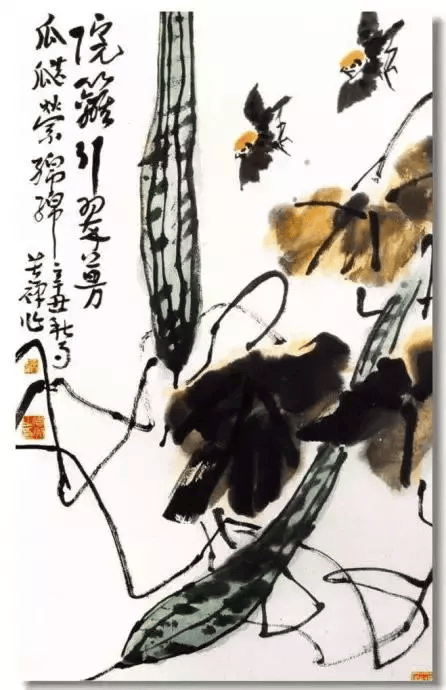 院籬引翠蔓
瓜瓞縈綿綿
辛丑秋
苦禪